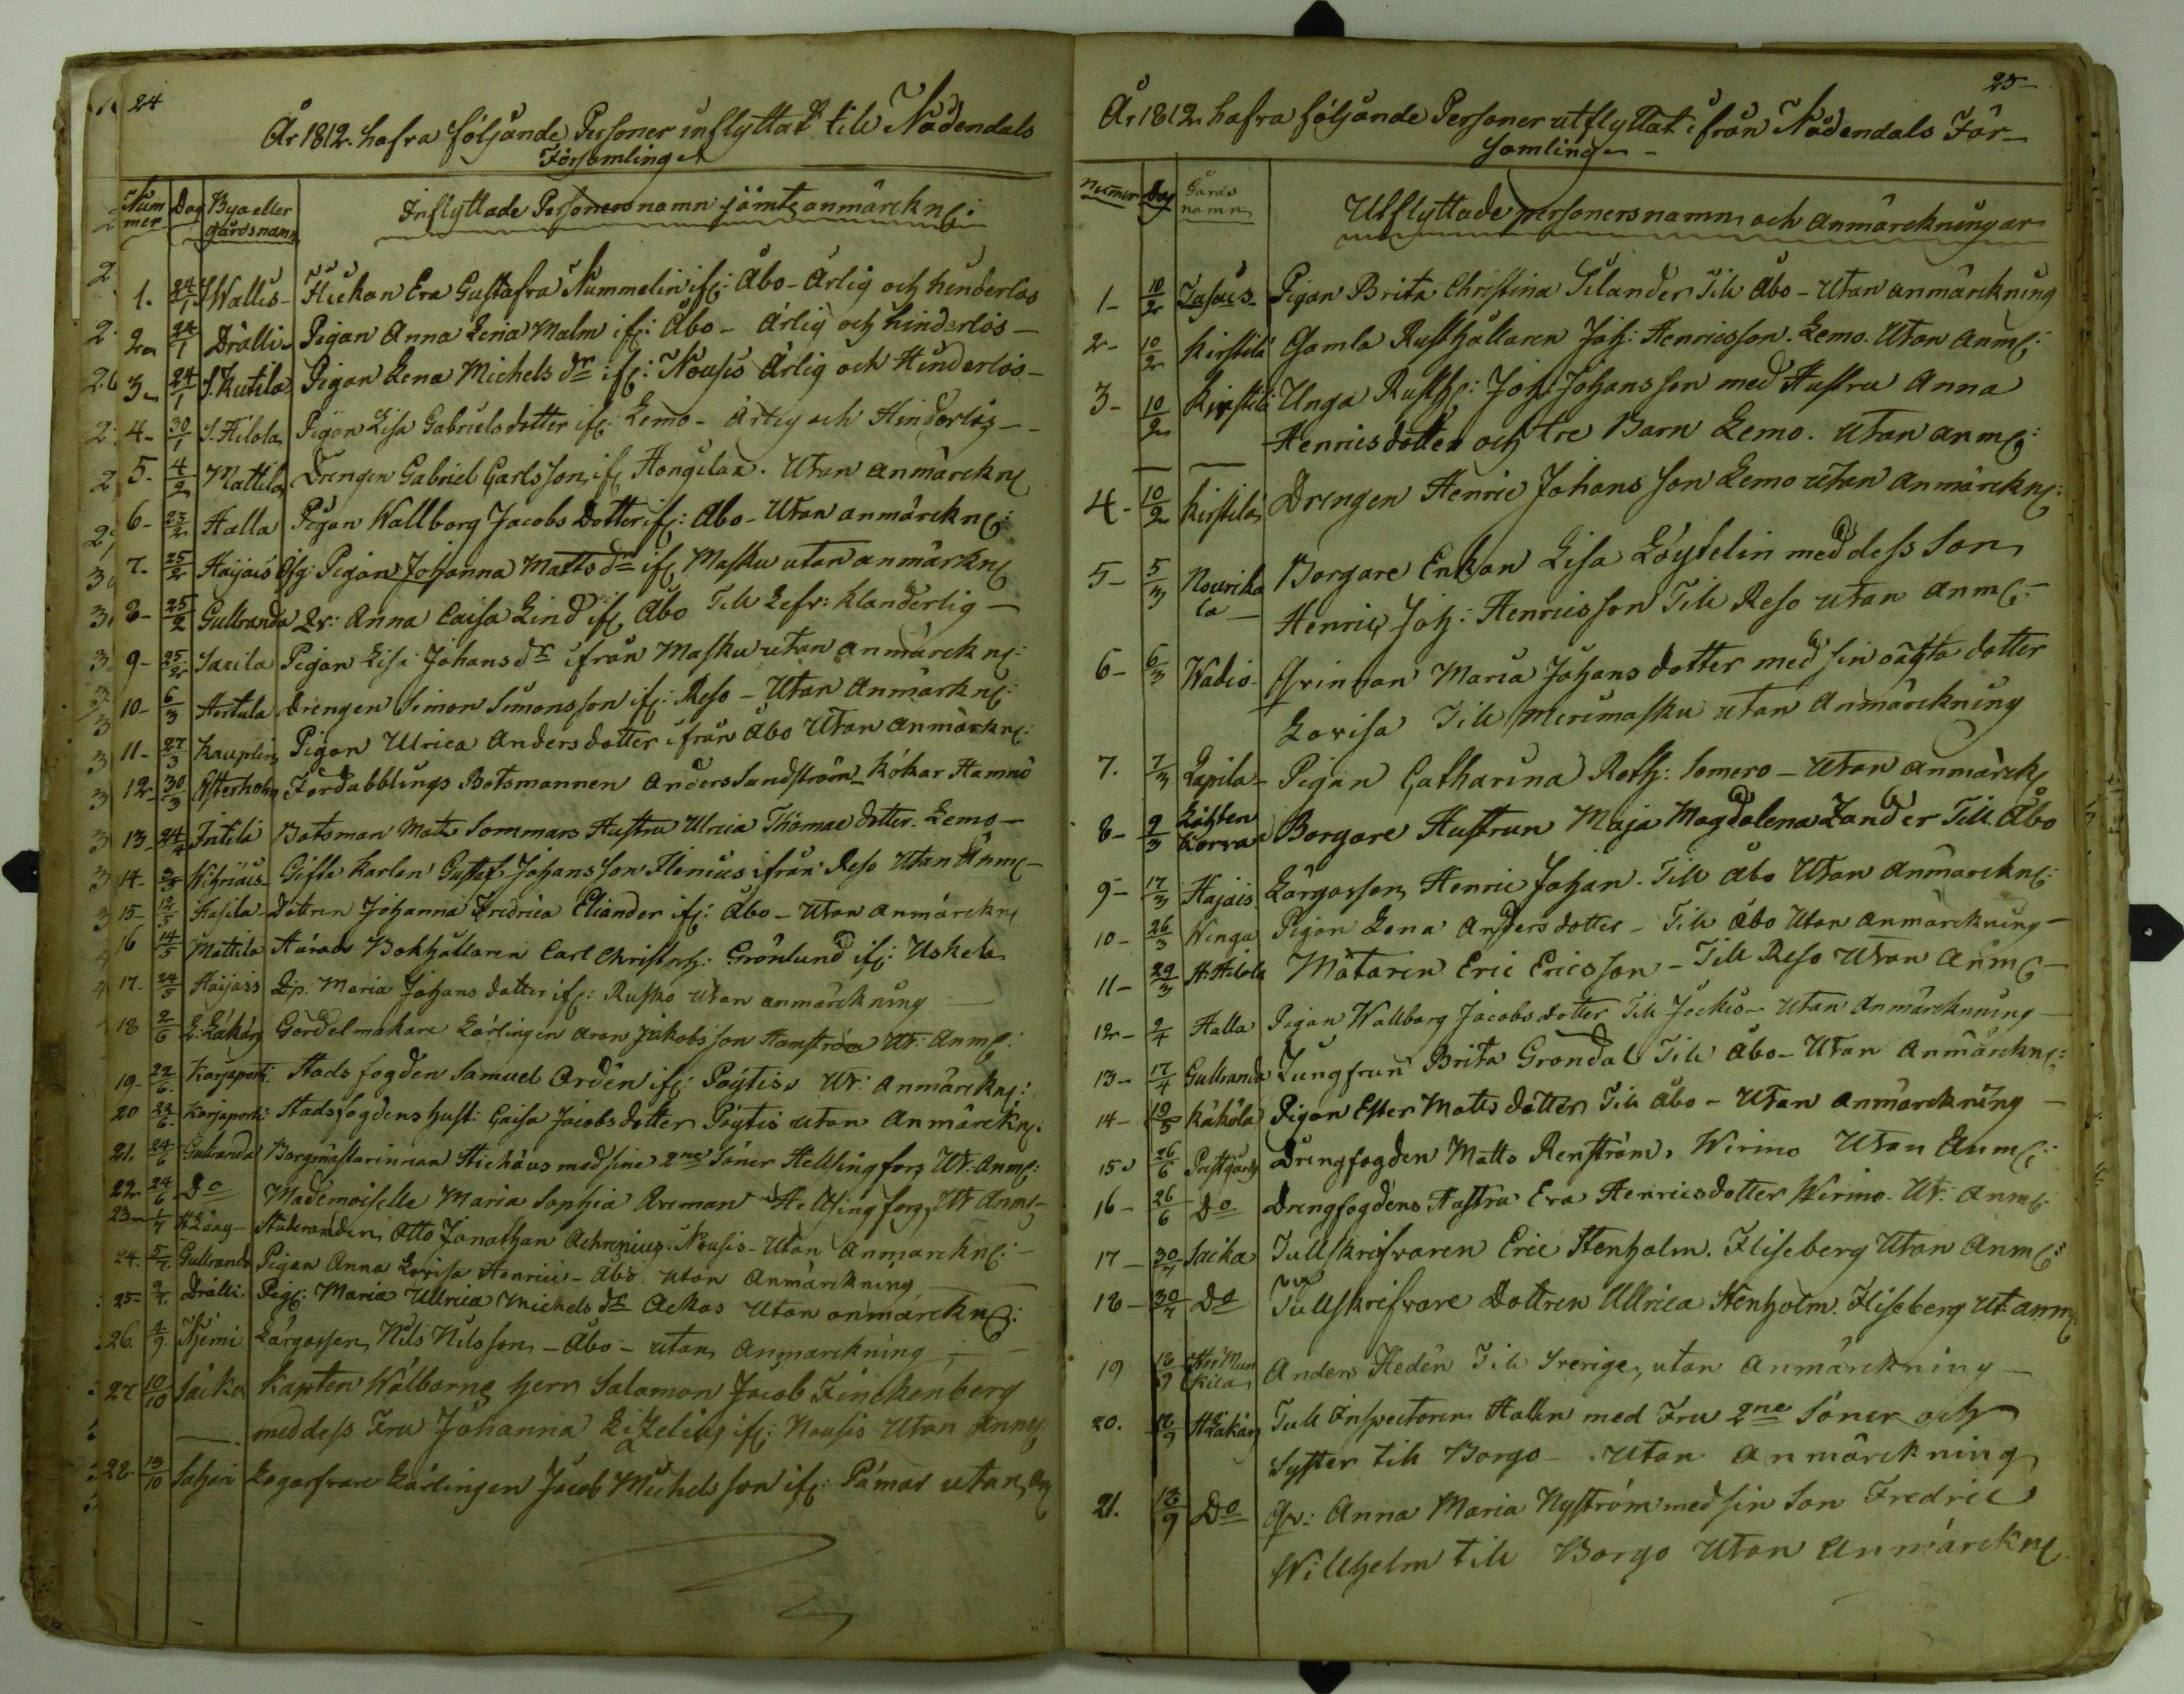 24
År 1812. hafva följande Personer inflyttat till Nådendals
Församling
Num mer Dag By eller gårdsnamn Inflyttade Personers namn jämte anmärckn:
1. 24/1 Wallis - Flickan Eva Gustafva Nummelin if: Åbo - Ärlig och hinderlös
2 24/1 Drålli Pigan Anna Lena Malm if: Åbo - Ärlig och hinderlös -
3 24/1 S. Kutila Pigan Lena Michels dr if: Nousis Ärlig och Hinderlös -
4 - 30/1 S. Hilola Pigan Lisa Gabriels dotter if: Lemo - Ärlig och Hinderlös -
5. 4/2 Mattila Drengen Gabriel Carlsson if. Hongilax. Utan anmärckn
6 - 23/2 Halla Pigan Wallborg Jacobs dotter if: Åbo - Utan anmärckn:
7. 25/2 Haijais Pigan Johanna Matts dr if Masku utan anmärkn
8 - 25/2 Gullranda Qv: Anna Caisa Lind if. Åbo Till Lefv: klanderlig -
9 - 25/2 Saxila Pigan Lisa Johans dr ifrån Masku utan anmärckn:
10 - 6/3 Hertula Drengen Simon Simonsson if: Reso - Utan Anmärkn:
11 - 27/3 Kauplin Pigan Ulrica Anders dotter ifrån Åbo Utan anmärkn:
12 - 30/3 Österholm Fördubblings Botsmannen Anders Sundström - Kökar Hamnö
13 - 24/4 Intilä Botsman Mats Sommars Hustru Ulrica Thomæ dotter. Lemo -
14 - 2/5 Gifta Karlen Gustaf Johansson Flenius ifrån Reso Utan Anm -
15 - 12/5 Hasila - Dottren Johanna Fredrica Eliander if: Åbo - Utan anmärckn
16 14/5 Mattila Härads Bokhållaren Carl Christoph: Grönlund if: Uskela
17 - 24/5 Haijais Maria Johans dotter if: Rusko utan anmärckning
18 2/6 L. Läkäri Gördelmakare Lärlingen Aron Jakobsson Hamström Ut: Anm:
19 - 22/6 Karjaporti. Stads fogden Samuel Ordén if: Pöytis. Ut: anmärckn:
20 23/6 Karjaporti: Stadsfogdens hust: Caisa Jacobs dotter Pöytis utan Anmärckn.
21. 24/6 Gullranda Borgmästarinnan Hichæus med sine 2ne Söner Helsingfors Ut: Anm:
22 24/6 Do Mademoiselle Maria Sophia Avrman Helsingfors, Ut Anm -
23 - 1/7 Studeranden Otto Jonathan Achrenius. Nousis - Utan Anmärckn: -
24. 5/7. Gullranda Pigan Anna Lovisa Henrici - Åbo. utan Anmärckning
25 - 9/7. Drålli. Pig: Maria Ullrica Michels dr Ackas Utan anmärckn:
26. 4/9. Niemi Lärgossen Nils Nilsson - Åbo - utan Anmärckning -
27 10/10 Saika Kapten Wälborne herr Salamon Jacob Finckenberg
med dess Fru Johanna Lizelius if: Nousis Utan Anm
28. 13/10 Safari Logarfvare Lärlingen Jacob Michelsson if: Pämar utan An
25
År 1812 hafva följande Personer utflyttat ifrån Nådendals För-
samling -
Numer Dag Gårds namn Utflyttade personers namn och anmärckningar
1 - 10/2 Pigan Brita Christina Silander Till Åbo - Utan anmärckning
2 - 10/2 Kirstilä Gamla Rusthållaren Joh: Henricsson. Lemo. Utan Anm:
3 - 10/2 Kirstilä Unga Rusth: Joh: Johansson med Hustru Anna
Henricsdotter och tre Barn Lemo. utan anm:
4 - 10/2 Kirstilä Drengen Henric Johansson Lemo utan anmärckn:
5 - 5/3 Nourika la - Borgare Enkan Lisa Löytelin med dess Son
Henric Joh: Henricsson Till Reso utan Anm: -
6 - 6/3 Wadio - Qvinnan Maria Johans dotter med sin oäckta dotter
Lovisa Till Merimasku utan Anmärckning
7. 7/3 Lapila - Pigan Catharina Roth: Somero - Utan anmärck
8 - 9/3 Borgare Hustrun Maja Magdalena Zander Till Åbo
9 - 17/3 Hajais. Lärgossen Henric Johan. Till Åbo Utan Anmärckn:
10 - 26/3 Winga Pigan Lena Anders dotter - Till Åbo Utan anmärckning -
11 - 29/3 H. Hilola Mätaren Eric Ericsson - Till Reso Utan Anm -
12 - 2/4 Halla Pigan Wallborg Jacobs dotter Till Jockis - Utan Anmärckning -
13 - 17/4 Gullranda Jungfrun Brita Gröndal Till Åbo - Utan Anmärckn:
14 - 19/5 Käkölä Pigan Ester Matts dotter Till Åbo - Utan Anmärckning -
15 26/6 Prestgård Drengfogden Matts Renström. Wirmo Utan Anm:
16 - 26/6 Do Drengfogdens Hustru Eva Henricsdotter Wirmo. Ut: Anm:
17 - 30/7 Saika Tullskrifvaren Eric Stenholm. Fliseberg Utan Anm:
18 - 30/7 Do Tullskrifvare Dottren Ullrica Stenholm. Fliseberg Ut: anm:
19 18/9 Munkila Anders Hedén Till Sverige, utan Anmärckning -
20. 18/9 H Läkäri Tull Inspectoren Hallen med Fru 2ne Söner och
Syster till Borgo - utan Anmärckning
21. 18/9 Do Qv: Anna Maria Nyström med sin Son Fredric
Willhelm till Borgo Utan Anmärckn